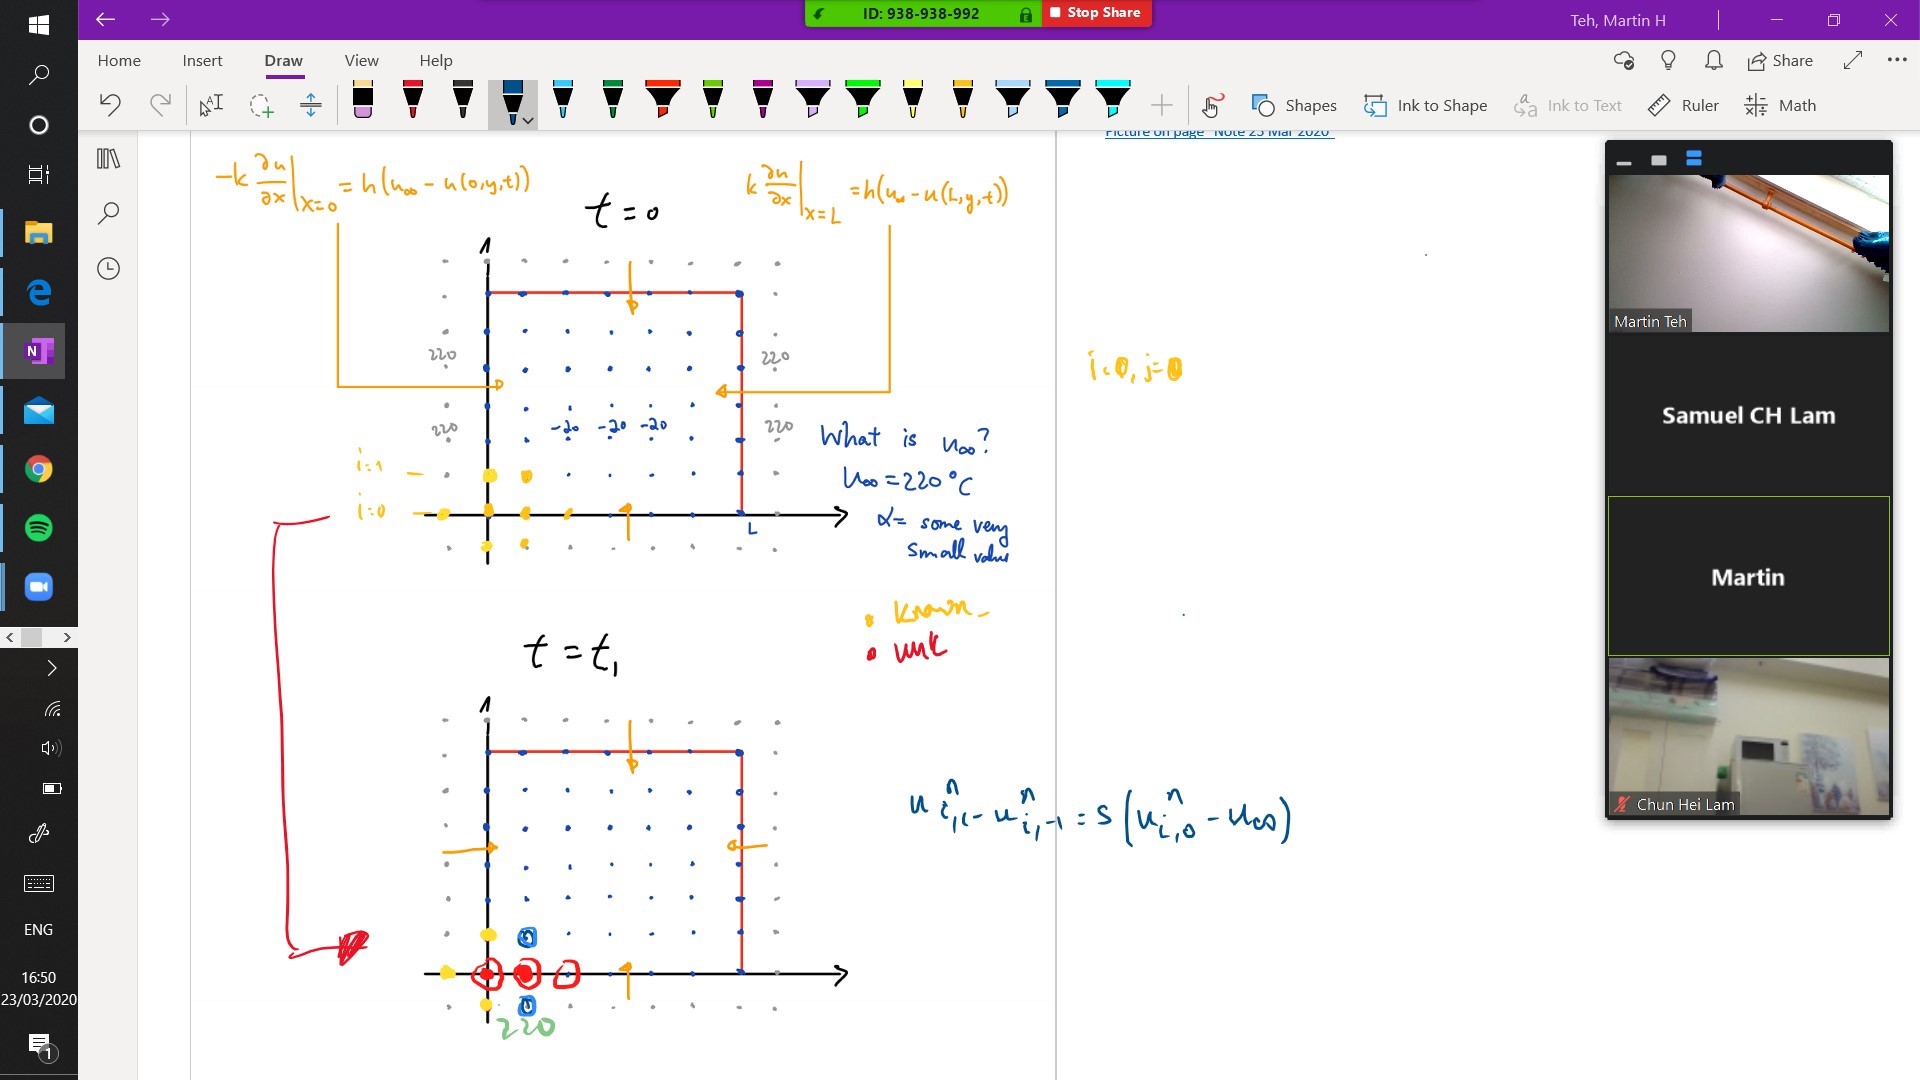 ID: 938-938-992
Stop Share
Teh, Martin H
Home Insert Draw View Help
Share
Shapes
Ink to Shape
Ink to Text
Ruler
Math
Picture on page "Note 23 Mar 2020"
-k ∂u/∂x |x=0 = h(u∞ - u(0,y,t))
k ∂u/∂x |x=L = h(u∞ - u(L,y,t))
t = 0
220 220
220 -20 -20 -20 220
i=1
i=0
L
What is u∞?
U∞ = 220 °C
α = some very
small value
i=0, j=0
• known
• unk
t = t₁
uⁿi,1 - uⁿi,-1 = S (uⁿi,0 - u∞)
220
Martin Teh
Samuel CH Lam
Martin
Chun Hei Lam
N
ENG
16:50
23/03/2020
1